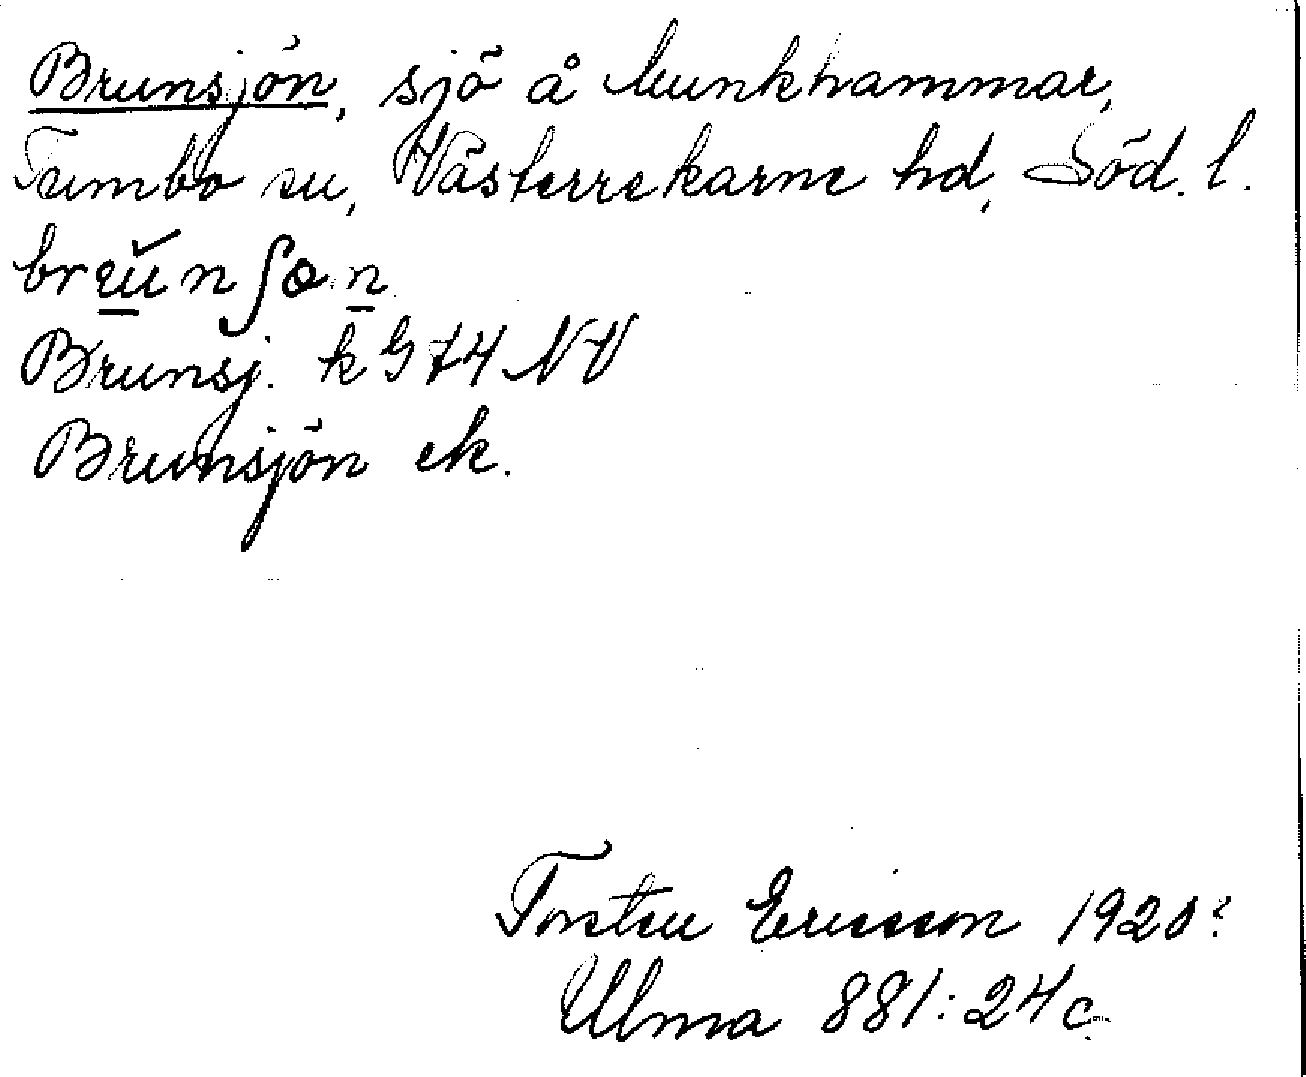 Brunsjön, sjö å Munkhammar,
Tumbo sn, Västerrekarne hd, Söd. l.
Brunsj. k G 74 NV
Brunsjön ek.
Torsten Ericsson 1920?
Ulma 881:24c